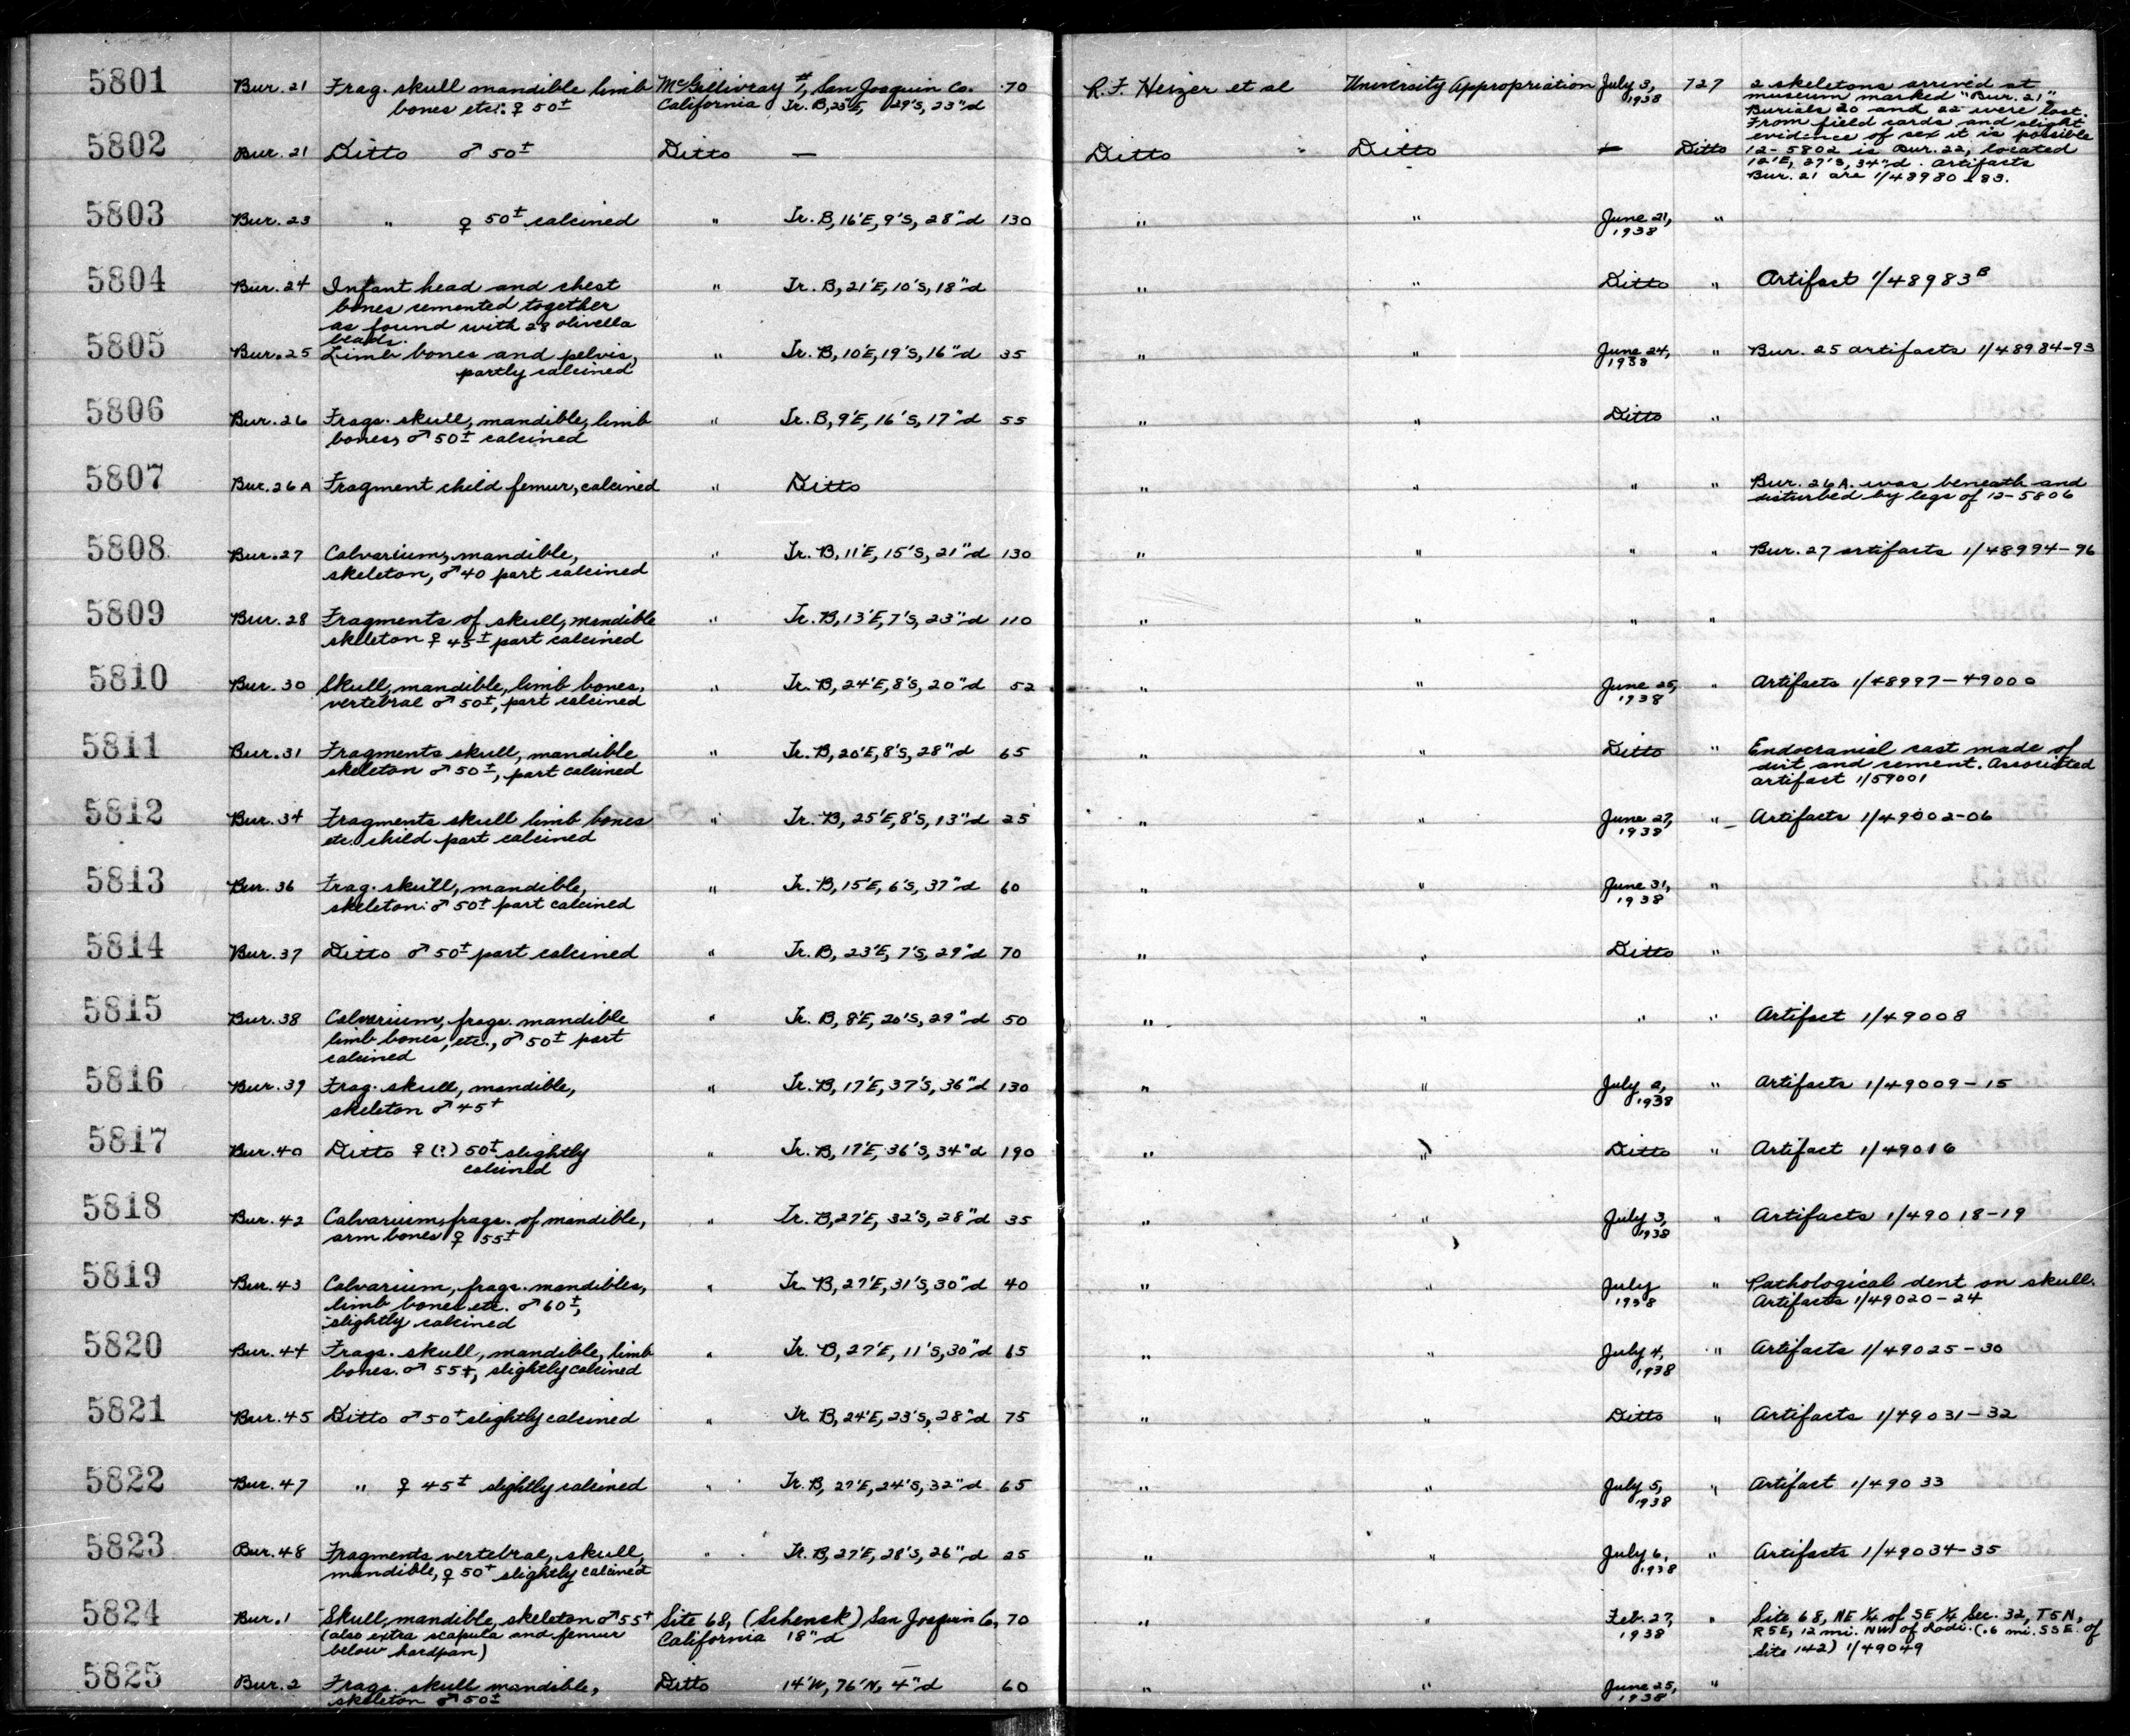 5801 Bur. 21 Frag. skull mandible limb McGillivray #1, San Joaquin Co. 70 R.F. Heizer et al University Appropriation July 3, 727 2 skeletons arrived at
bones etc: ♀ 50± California Tr. B, 23'E, 29'S, 23"d 1938 museum marked "Bur. 21",
Burials 20 and 22 were lost.
From field cards and slight
evidence of sex it is possible
5802 Bur. 21 Ditto ♂ 50± Ditto — Ditto " Ditto — Ditto 12-5802 is Bur. 22, located
12'E, 27'S, 34"d. Artifacts
Bur. 21 are 1/48980-83.
5803 Bur. 23 " ♀ 50± calcined " Tr. B, 16'E, 9'S, 28"d 130 " " June 21, "
1938
5804 Bur. 24 Infant head and chest " Tr. B, 21'E, 10'S, 18"d " " Ditto " Artifact 1/48983B
bones cemented together
as found with 28 olivella
beads.
5805 Bur. 25 Limb bones and pelvis, " Tr. B, 10'E, 19'S, 16"d 35 " " June 24, " Bur. 25 artifacts 1/48984-93
partly calcined 1938
5806 Bur. 26 Frags. skull, mandible, limb " Tr. B, 9'E, 16'S, 17"d 55 " " Ditto "
bones, ♂ 50± calcined
5807 Bur. 26A Fragment child femur, calcined " Ditto " " " " Bur. 26A. was beneath and
disturbed by legs of 12-5806
5808 Bur. 27 Calvarium, mandible, " Tr. B, 11'E, 15'S, 21"d 130 " " " " Bur. 27 artifacts 1/48994-96
skeleton, ♂ 40 part calcined
5809 Bur. 28 Fragments of skull, mandible " Tr. B, 13'E, 7'S, 23"d 110 " " " "
skeleton ♀ 45± part calcined
5810 Bur. 30 Skull, mandible, limb bones, " Tr. B, 24'E, 8'S, 20"d 52 " " June 25, " Artifacts 1/48997-49000
vertebrae ♂ 50±, part calcined 1938
5811 Bur. 31 Fragments skull, mandible " Tr. B, 20'E, 8'S, 28"d 65 " " Ditto " Endocranial cast made of
skeleton ♂ 50±, part calcined dirt and cement. Associated
artifact 1/59001
5812 Bur. 34 Fragments skull limb bones " Tr. B, 25'E, 8'S, 13"d 25 " " June 27, " Artifacts 1/49002-06
etc. child part calcined 1938
5813 Bur. 36 Frag. skull, mandible, " Tr. B, 15'E, 6'S, 37"d 60 " " June 31, "
skeleton: ♂ 50± part calcined 1938
5814 Bur. 37 Ditto ♂ 50± part calcined " Tr. B, 23'E, 7'S, 29"d 70 " " Ditto "
5815 Bur. 38 Calvarium, frags. mandible " Tr. B, 8'E, 20'S, 29"d 50 " " " " Artifact 1/49008
limb bones, etc., ♂ 50± part
calcined
5816 Bur. 39 Frag. skull, mandible, " Tr. B, 17'E, 37'S, 36"d 130 " " July 2, " Artifacts 1/49009-15
skeleton ♂ 45+ 1938
5817 Bur. 40 Ditto ♀ (?) 50± slightly " Tr. B, 17'E, 36'S, 34"d 190 " " Ditto " Artifact 1/49016
calcined
5818 Bur. 42 Calvarium, frags. of mandible, " Tr. B, 27'E, 32'S, 28"d 35 " " July 3, " Artifacts 1/49018-19
arm bones ♀ 55± 1938
5819 Bur. 43 Calvarium, frags. mandibles, " Tr. B, 27'E, 31'S, 30"d 40 " " July " Pathological dent on skull.
limb bones etc. ♂ 60±, 1938 Artifacts 1/49020-24
slightly calcined
5820 Bur. 44 Frags. skull, mandible, limb " Tr. B, 27'E, 11'S, 30"d 65 " " July 4, " Artifacts 1/49025-30
bones. ♂ 55±, slightly calcined 1938
5821 Bur. 45 Ditto ♂ 50+ slightly calcined " Tr. B, 24'E, 23'S, 28"d 75 " " Ditto " Artifacts 1/49031-32
5822 Bur. 47 " ♀ 45± slightly calcined " Tr. B, 27'E, 24'S, 32"d 65 " " July 5, " Artifact 1/49033
1938
5823 Bur. 48 Fragments vertebrae, skull, " Tr. B, 27'E, 28'S, 26"d 25 " " July 6, " Artifacts 1/49034-35
mandible, ♀ 50+ slightly calcined 1938
5824 Bur. 1 Skull, mandible, skeleton ♂ 55+ Site 68, (Schenck) San Joaquin Co, 70 " " Feb. 27, " Site 68, NE ¼ of SE ¼ Sec. 32, T5N,
(also extra scapula and femur California 18"d 1938 R5E, 12 mi. NW of Lodi. (.6 mi. SSE. of
below hardpan) Site 142) 1/49049
5825 Bur. 2 Frags. skull mandible, Ditto 14'W, 76'N, 4"d 60 " " June 25, "
skeleton ♂ 50± 1938